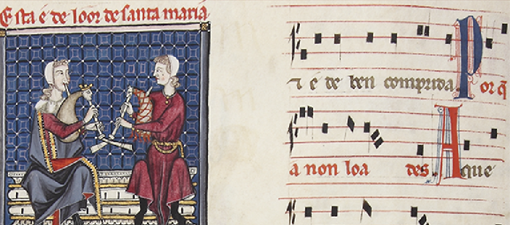 Esta é de loor de santa maria
r é de ben comprida Por q̄
a non loades Aque